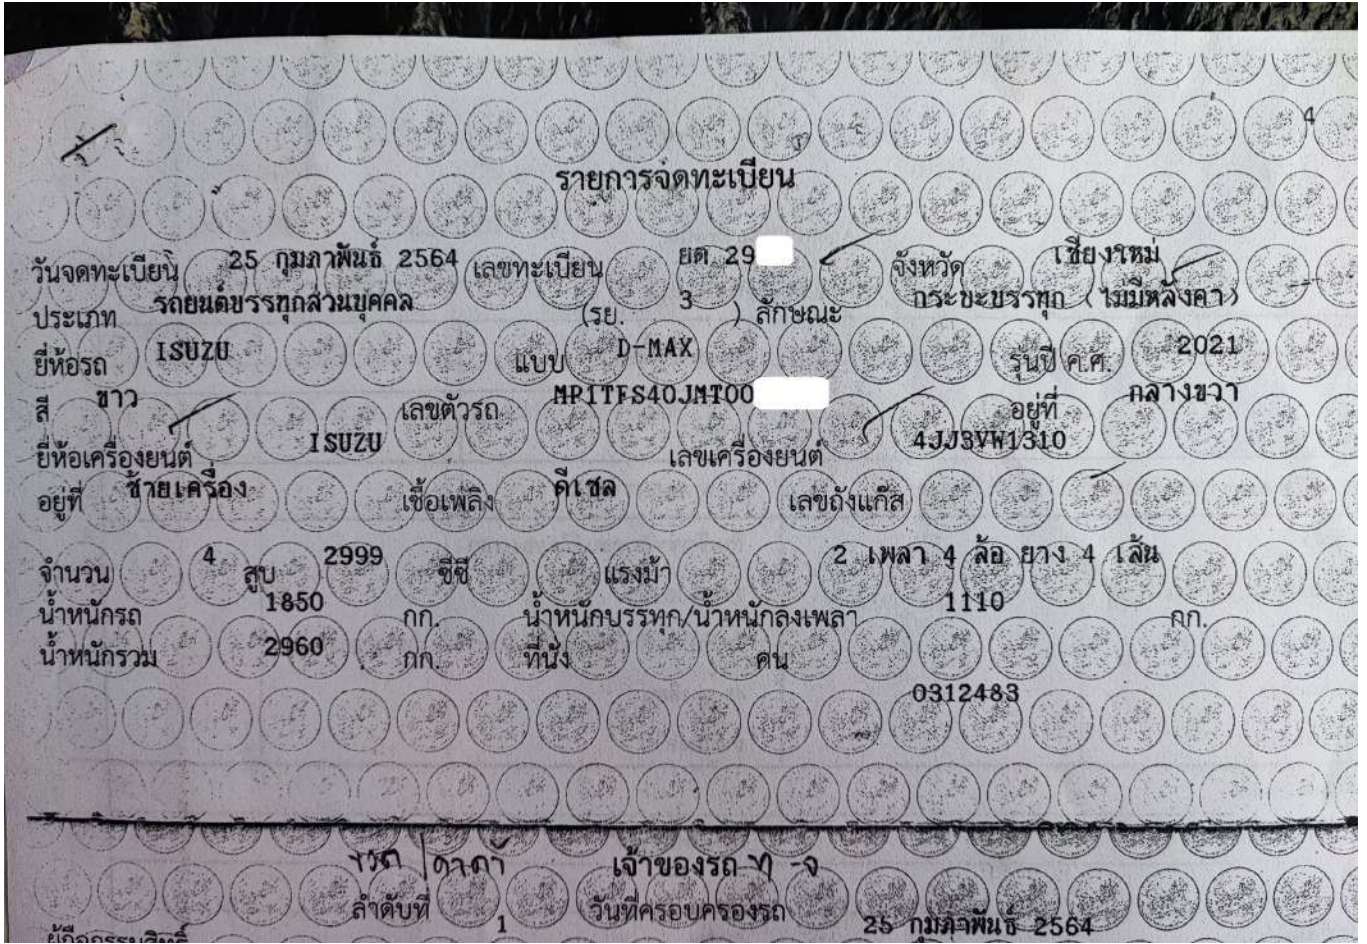 4
รายการจดทะเบียน
วันจดทะเบียน 25 กุมภาพันธ์ 2564 เลขทะเบียน ยต 29 จังหวัด เชียงใหม่
ประเภท รถยนต์บรรทุกส่วนบุคคล (รย. 3 ) ลักษณะ กระบะบรรทุก (ไม่มีหลังคา)
ยี่ห้อรถ ISUZU แบบ D-MAX รุ่นปี ค.ศ. 2021
สี ขาว เลขตัวรถ MP1TFS40JMT00 อยู่ที่ กลางขวา
ยี่ห้อเครื่องยนต์ ISUZU เลขเครื่องยนต์ 4JJ3VW1310
อยู่ที่ ซ้ายเครื่อง เชื้อเพลิง ดีเซล เลขถังแก๊ส
จำนวน 4 สูบ 2999 ซีซี แรงม้า 2 เพลา 4 ล้อ ยาง 4 เส้น
น้ำหนักรถ 1850 กก. น้ำหนักบรรทุก/น้ำหนักลงเพลา 1110 กก.
น้ำหนักรวม 2960 กก. ที่นั่ง คน
0312483
เจ้าของรถ
ลำดับที่ 1 วันที่ครอบครองรถ 25 กุมภาพันธ์ 2564
ผู้ถือกรรมสิทธิ์